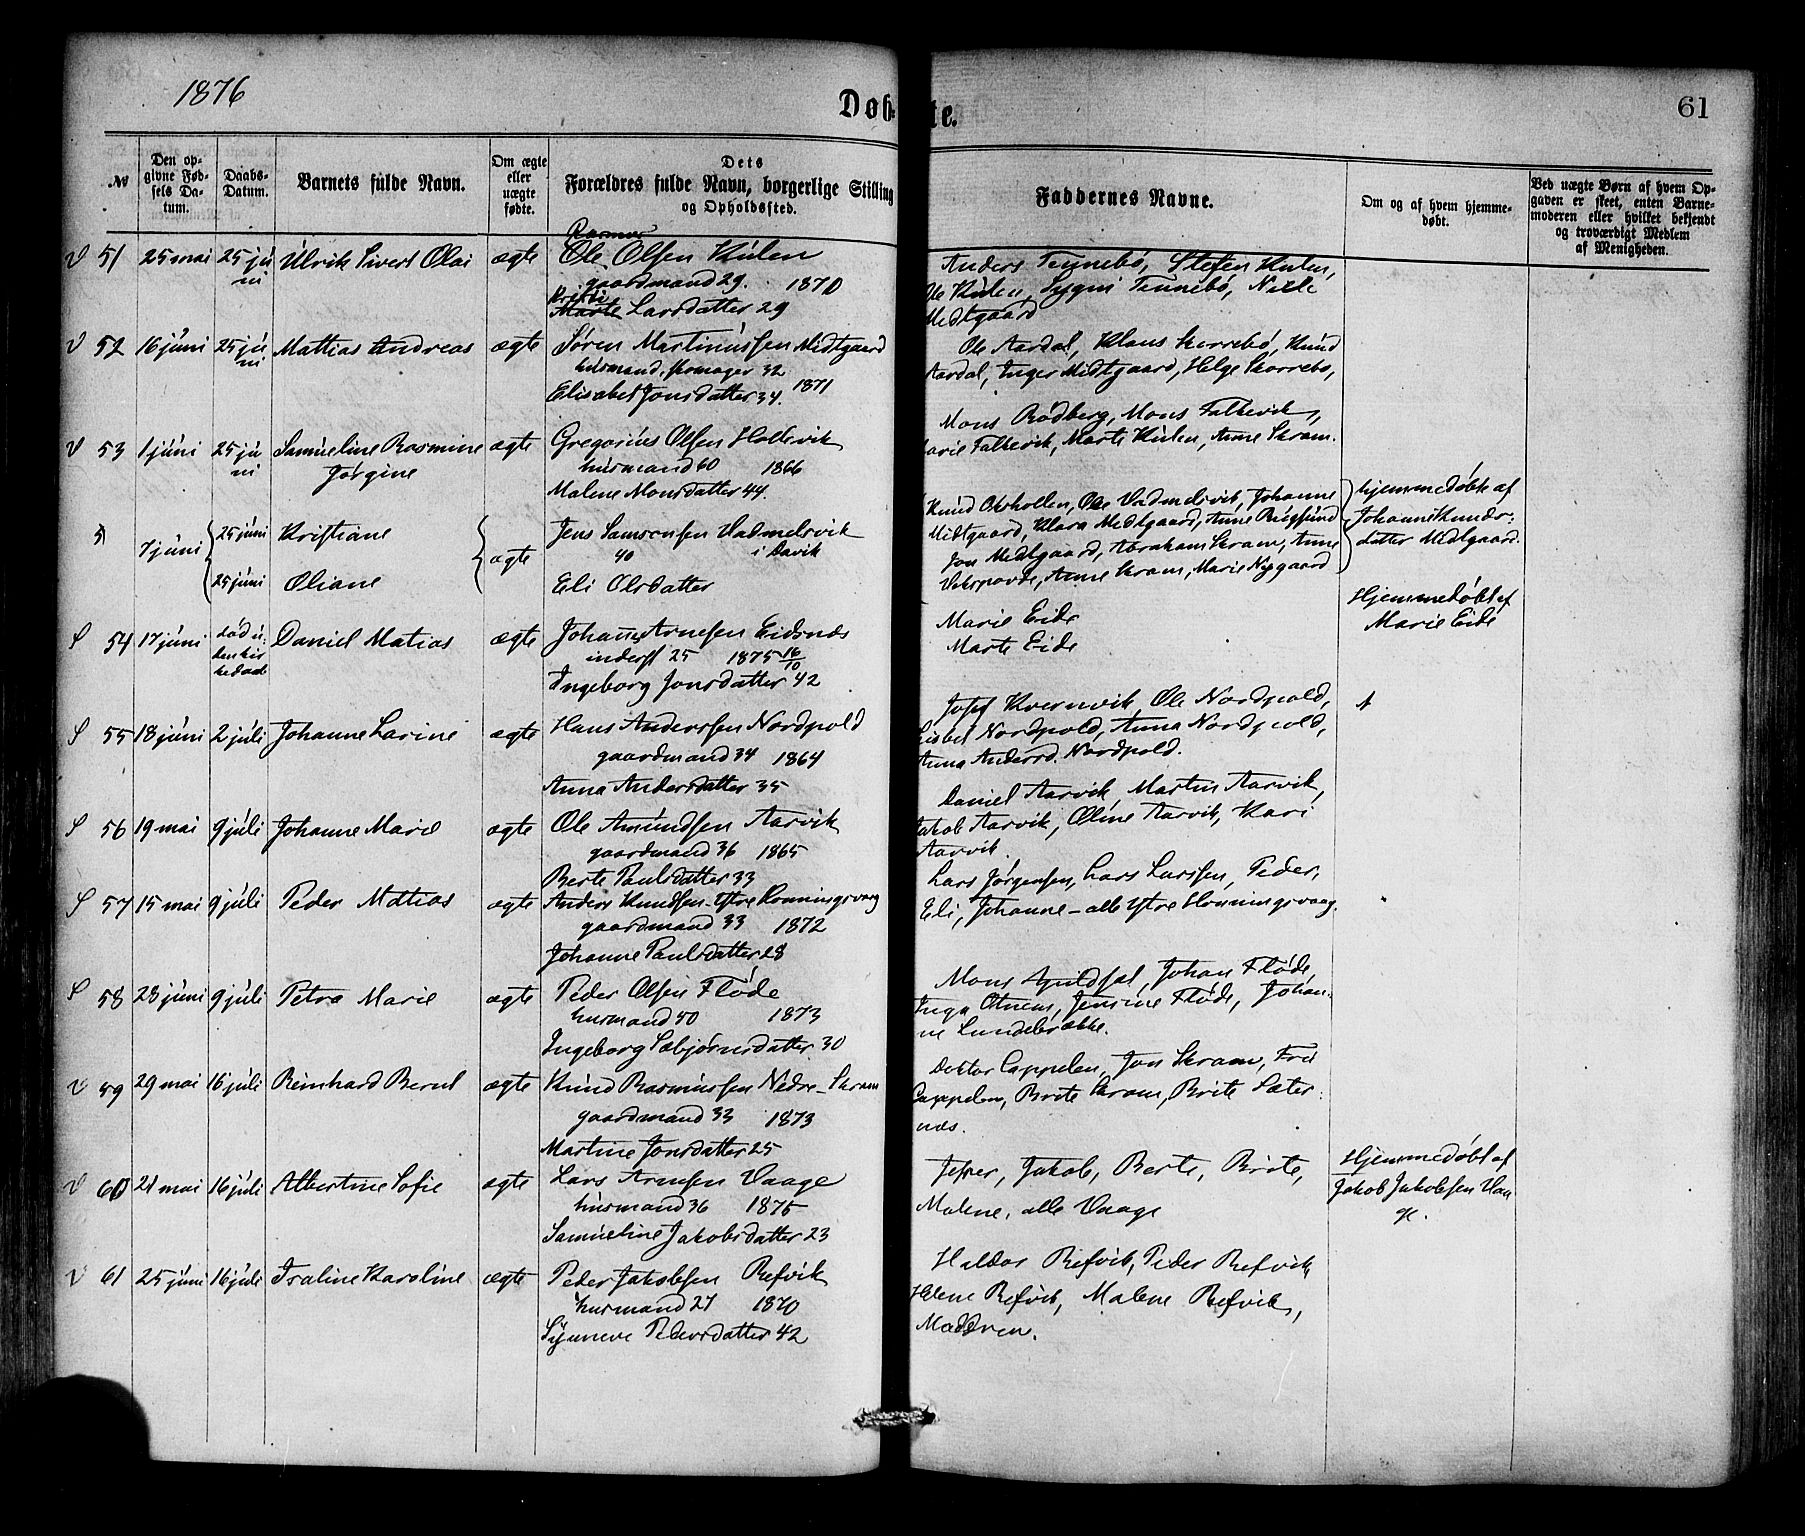 1876
Døbte.
61
No
Den opgivne Fødsels Datum.
Daabs-Datum.
Barnets fulde Navn.
Om ægte eller uægte fødte.
Dets Forældres fulde Navn, borgerlige Stilling og Opholdssted.
Faddernes Navne.
Om og af hvem hjemmedøbt.
Ved uægte Børn af hvem Opgaven er skeet, enten Barnemoderen eller hvilket bekjendt og troværdigt Medlem af Menigheden.
V 51 25 mai 25 juni Ulrik Sivert Olai ægte Ole Olsen Kulen
gaardmand 29. 1870
Larsdatter 29
Anders Tennebø, Stefen Kulen,
Ole Kulen, Tennebø,
Midtgaard
V 52 16 juni 25 juni Mattias Andreas ægte Søren Martinussen Midtgaard
husmand, skomager 32
Elisabet Jonsdatter 34. 1871
Ole Aardal, Klaus Skorrebø, Knud
Aardal, Inger Midtgaard, Helge Skorrebø,
V 53 1 juni 25 juni Samueline Rasmine Jørgine ægte Gregorius Olsen Holdevik
husmand 60 1866
Malene Monsdatter 44.
Mons Rødberg, Mons Falkevik,
Marie Falkevik, Marte Kulen, Anne Skram.
7 juni 25 juni Kristiane
25 juni Oliane
ægte Jens Samsonsen Vadmelsvik
40 i Davik
Eli Olsdatter
Knud Ole Vadmelsvik, Johanne
Midtgaard, Klara Midtgaard, Anne
Jon Midtgaard, Abraham Skram, Anne
Anne Skram, Marie Nygaard
hjemmedøbte af
Johanne Knudsdatter Midtgaard.
S 54 17 juni død uden kirkedaab Daniel Matias ægte Johannes Arnesen Eidsnæs
inderst 25 1875 16/10
Ingeborg Jonsdatter 42
Marie Eide
Marte Eide
Hjemmedøbt af
Marie Eide
S 55 18 juni 2 juli Johanne Larine ægte Hans Anderssen Nordpold
gaardmand 34 1864
Anna Andersdatter 35
Josef Kvernvik, Ole Nordpold,
Lisbet Nordpold, Anna Nordpold,
Anna Andersd. Nordpold.
S 56 19 mai 9 juli Johanne Marie ægte Ole Amundsen Aarvik
gaardmand 36 1865
Berte Paulsdatter 33
Daniel Aarvik, Martin Aarvik,
Jakob Aarvik, Oline Aarvik, Kari
Aarvik.
S 57 15 mai 9 juli Peder Matias ægte Anders Knudsen Ytre Honningsvaag
gaardmand 33 1872
Johanne Paulsdatter 28
Lars Jørgensen, Lars Larssen, Peder,
Eli, Johanne - alle Ytre Honningsvaag.
S 58 28 juni 9 juli Petra Marie ægte Peder Olsen Fløde
husmand 40 1873
Ingeborg Sæbjørnsdatter 30
Mons Johan Fløde,
Inga Jensine Fløde, Johanne
Lundebrække.
V 59 29 mai 16 juli Reinhard Bernt ægte Knud Rasmussen Nedre-Skram
gaardmand 33 1873
Martine Jonsdatter 25
Doktor Cappelen, Jon Skram, Fru
Cappelen, Brite Skram, Brite Sæternæs.
V 60 21 mai 16 juli Albertine Sofie ægte Lars Arnesen Vaage
husmand 36 1875
Samueline Jakobsdatter 23
Jesper, Jakob, Berte, Brite,
Malene, alle Vaage
Hjemmedøbt af
Jakob Jakobsen Vaage.
V 61 25 juni 16 juli Iraline Karoline ægte Peder Jakobsen Refvik
husmand 27 1870
Synneve Pedersdatter 42
Haldor Refvik, Peder Refvik,
Helene Refvik, Malene Refvik,
Moderen.